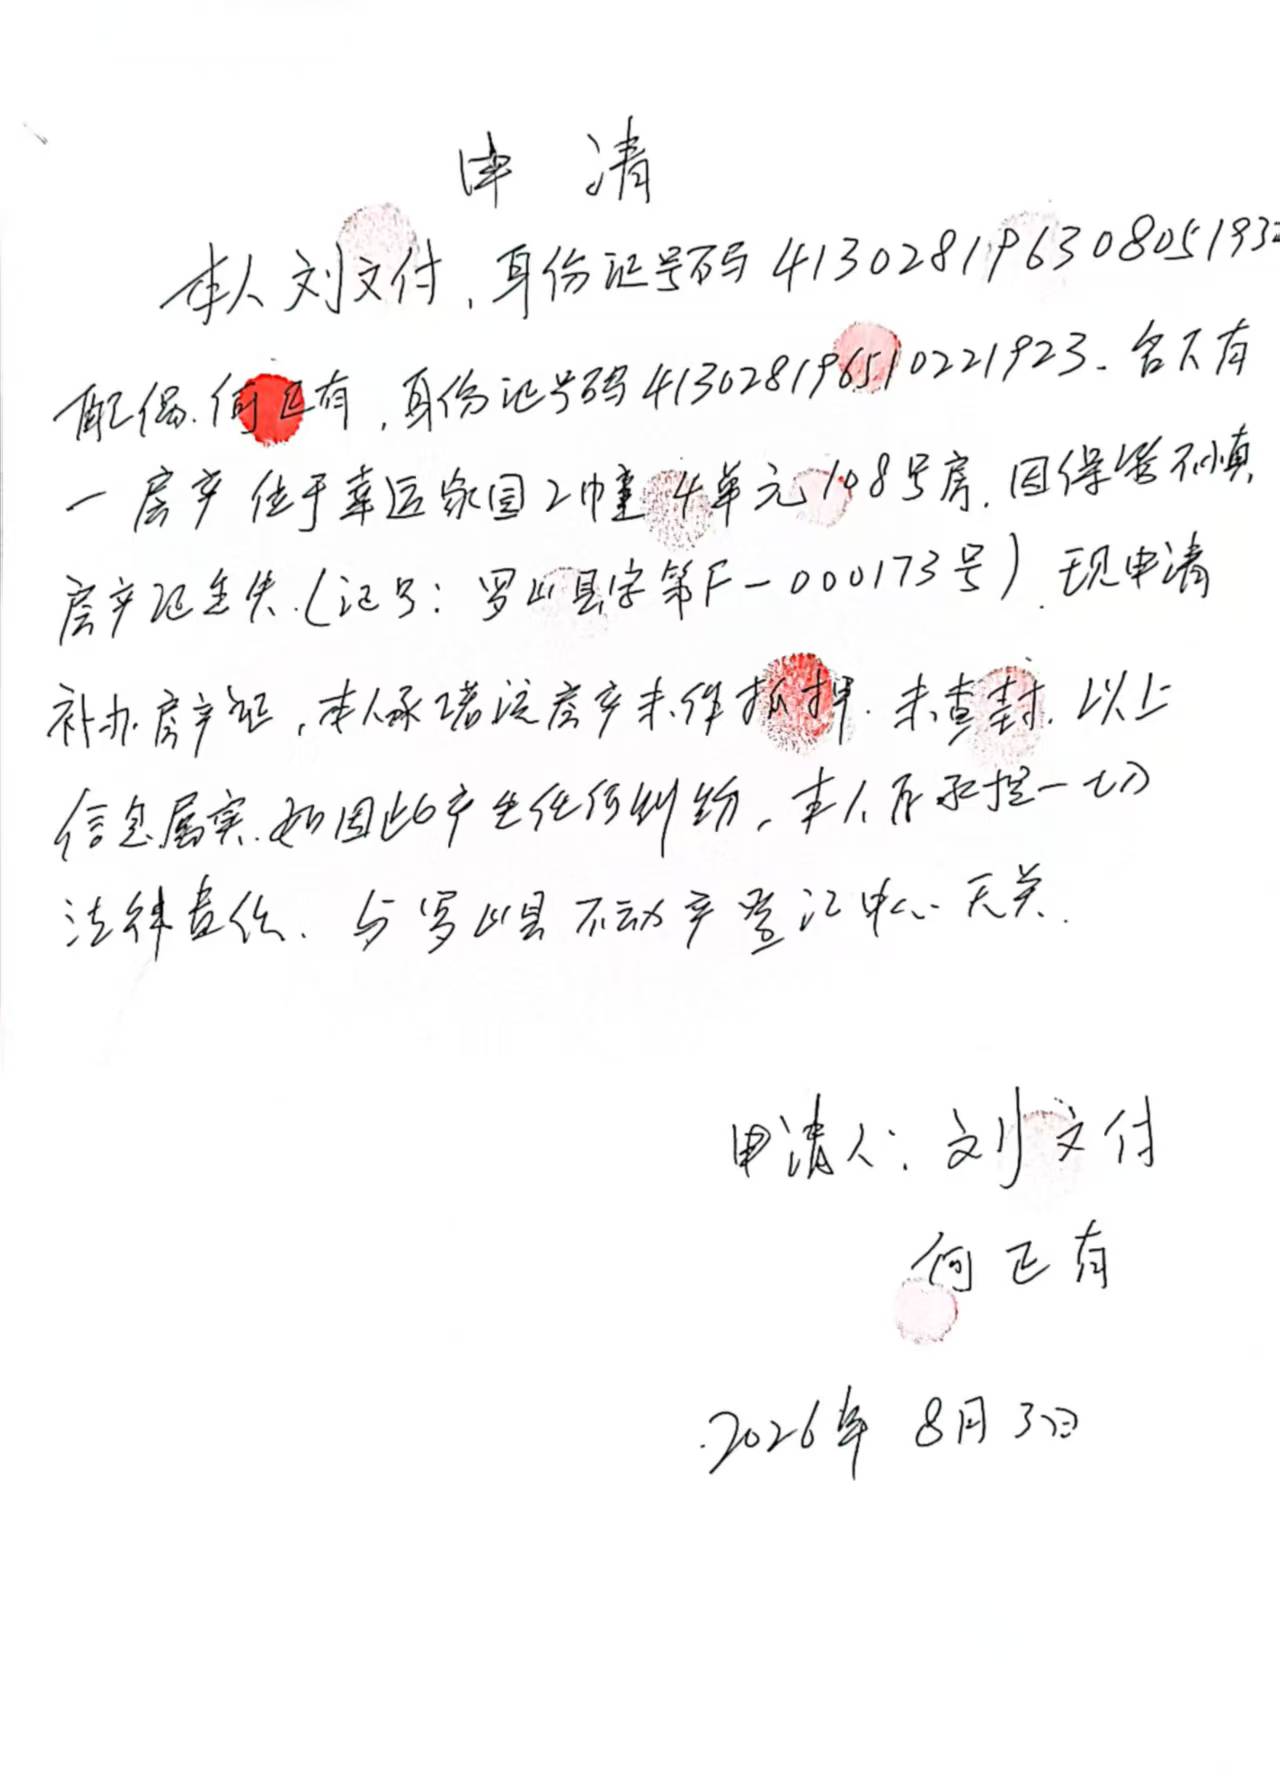 申请
本人刘文付，身份证号码41302819630805193
配偶.何正有，身份证号码413028196510221923.名下有
一房产位于幸运家园2幢4单元108号房.因保管不慎
房产证丢失.(证号：罗山县字第F-000173号).现申请
补办房产证，本人承诺该房产未作抵押.未查封.以上
信息属实.如因此产生任何纠纷，本人愿承担一切
法律责任.与罗山县不动产登记中心无关.
申请人：刘文付
何正有
2026年8月3日